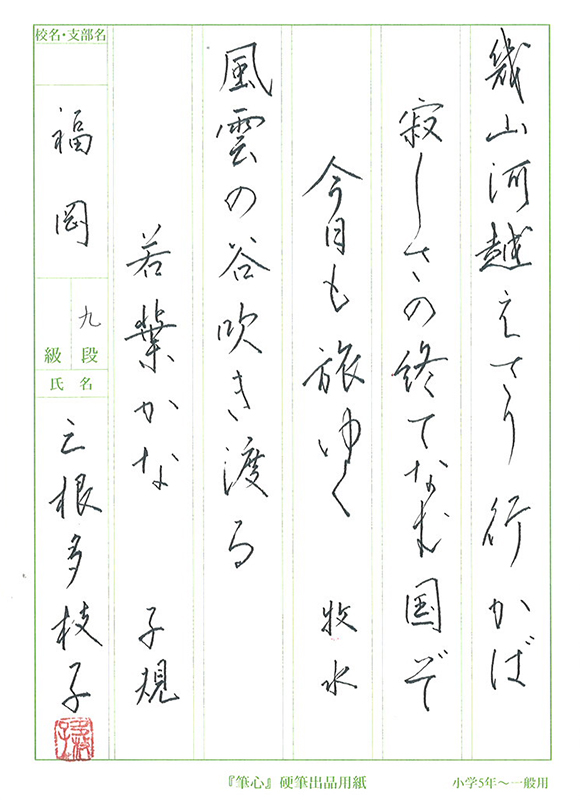 幾山河越えさり行かば
寂しさの終てなむ国ぞ
今日も旅ゆく 牧水
風雲の谷吹き渡る
若葉かな 子規
校名・支部名
福岡
九
段
級
氏名
三根多枝子
『筆心』硬筆出品用紙
小学5年〜一般用